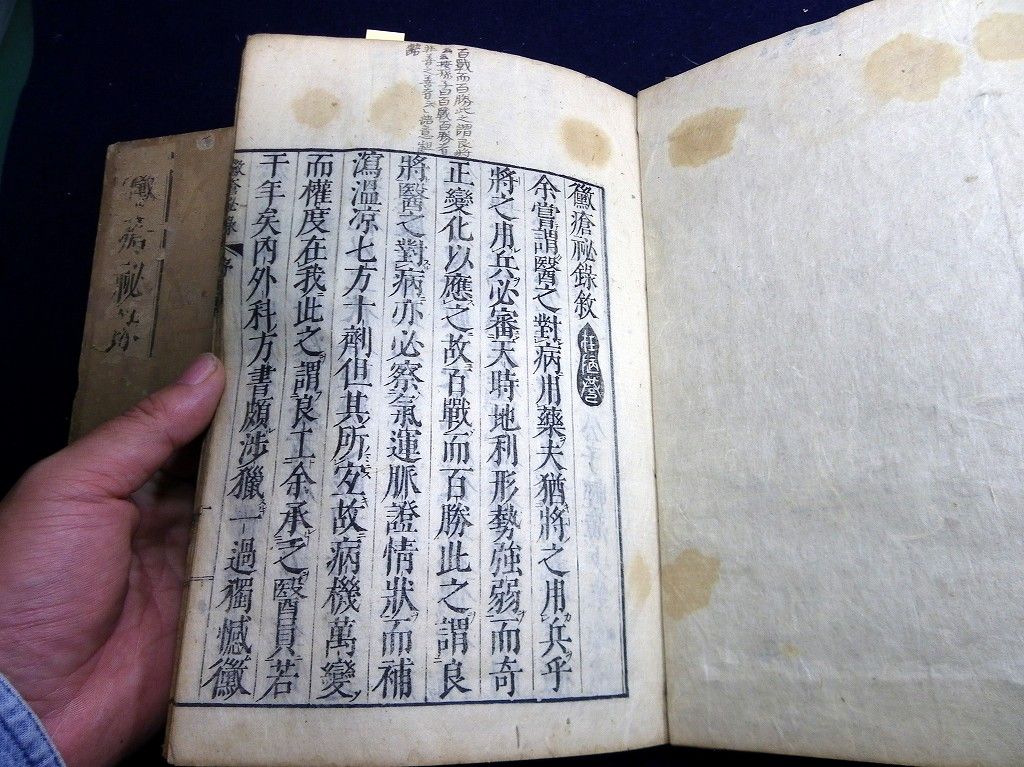 黴瘡祕錄敘
余嘗謂醫之對病用藥夫猶將之用兵乎
將之用兵必審天時地利形勢強弱而奇
正變化以應之故百戰而百勝此之謂良
將醫之對病亦必察氣運脈證情狀而補
瀉溫凉七方十劑但其所宜故病機萬變
而權度在我此之謂良工余承之醫員若
干年矣內外科方書頗涉獵一過獨憾黴
百戰而百勝此之謂良將
黴瘡祕錄
序